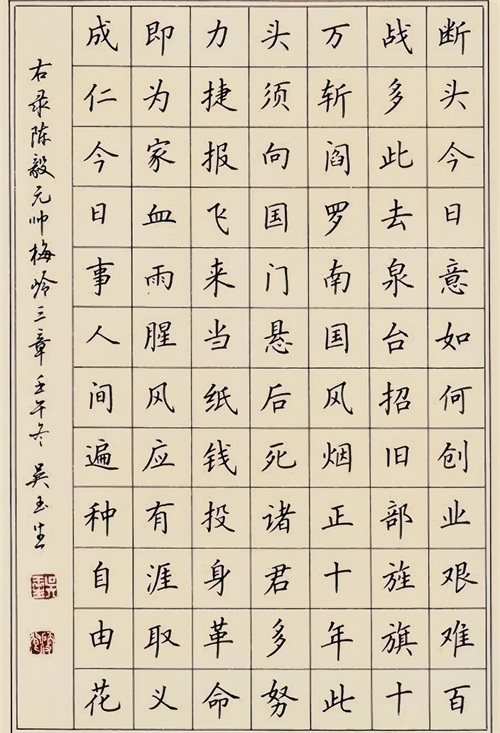 断头今日意如何创业艰难百
战多此去泉台招旧部旌旗十
万斩阎罗南国风烟正十年此
头须向国门悬后死诸君多努
力捷报飞来当纸钱投身革命
即为家血雨腥风应有涯取义
成仁今日事人间遍种自由花
右录陈毅元帅梅岭三章壬午冬吴玉生